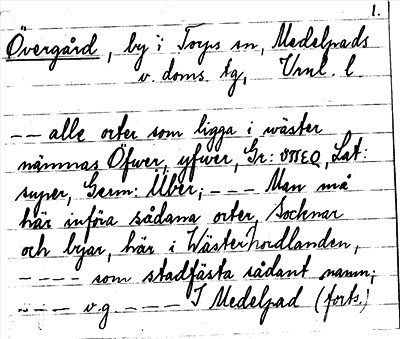 1.
Övergård, by i Torps sn, Medelpads
v. doms. tg, Vnl. l
-- alle orter som ligga i wäster
nämnas Öfwer, yfwer, Gr: υπερ, Lat:
super, Germ: Über; --- Man må
här införa sådana orter, Socknar
och byar, här i Wästerhordlanden,
---- som stadfästa sådant namn;
---- v.g. ---- I Medelpad (forts.)